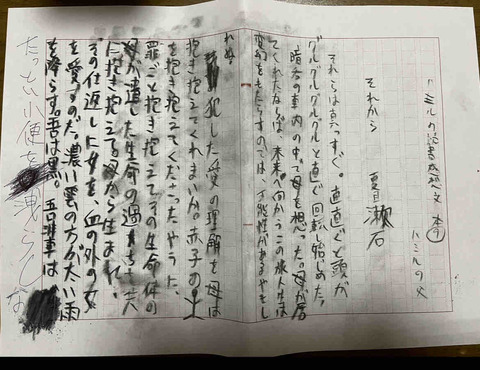 ハミルの読書感想文 本①
ハミルの父
それから 夏目漱石
それは真っすぐ。直直ぐと頭が
グルグルグルグルと直ぐ回転し始めた。
暗否の車内の中で母を想った。母が居
てくれたならば、本来へ向かうこの旅人生は
変幻をもたらすのでは、可能性があるやもし
れぬ。
犯した愛の理解を母は
抱き抱えてくれまいか。赤子の
を抱き抱えてくださったやうに、
罪ごと抱き抱えてその生命体の
母が遺した生命の過ちを
に抱き抱える。母から生まれ、
その仕返しに女を、血の外の女
を愛すのだ。濃い雲の方が大い雨
を降らす。吾は黒。吾 車は
たっとい小便を 洩らしな